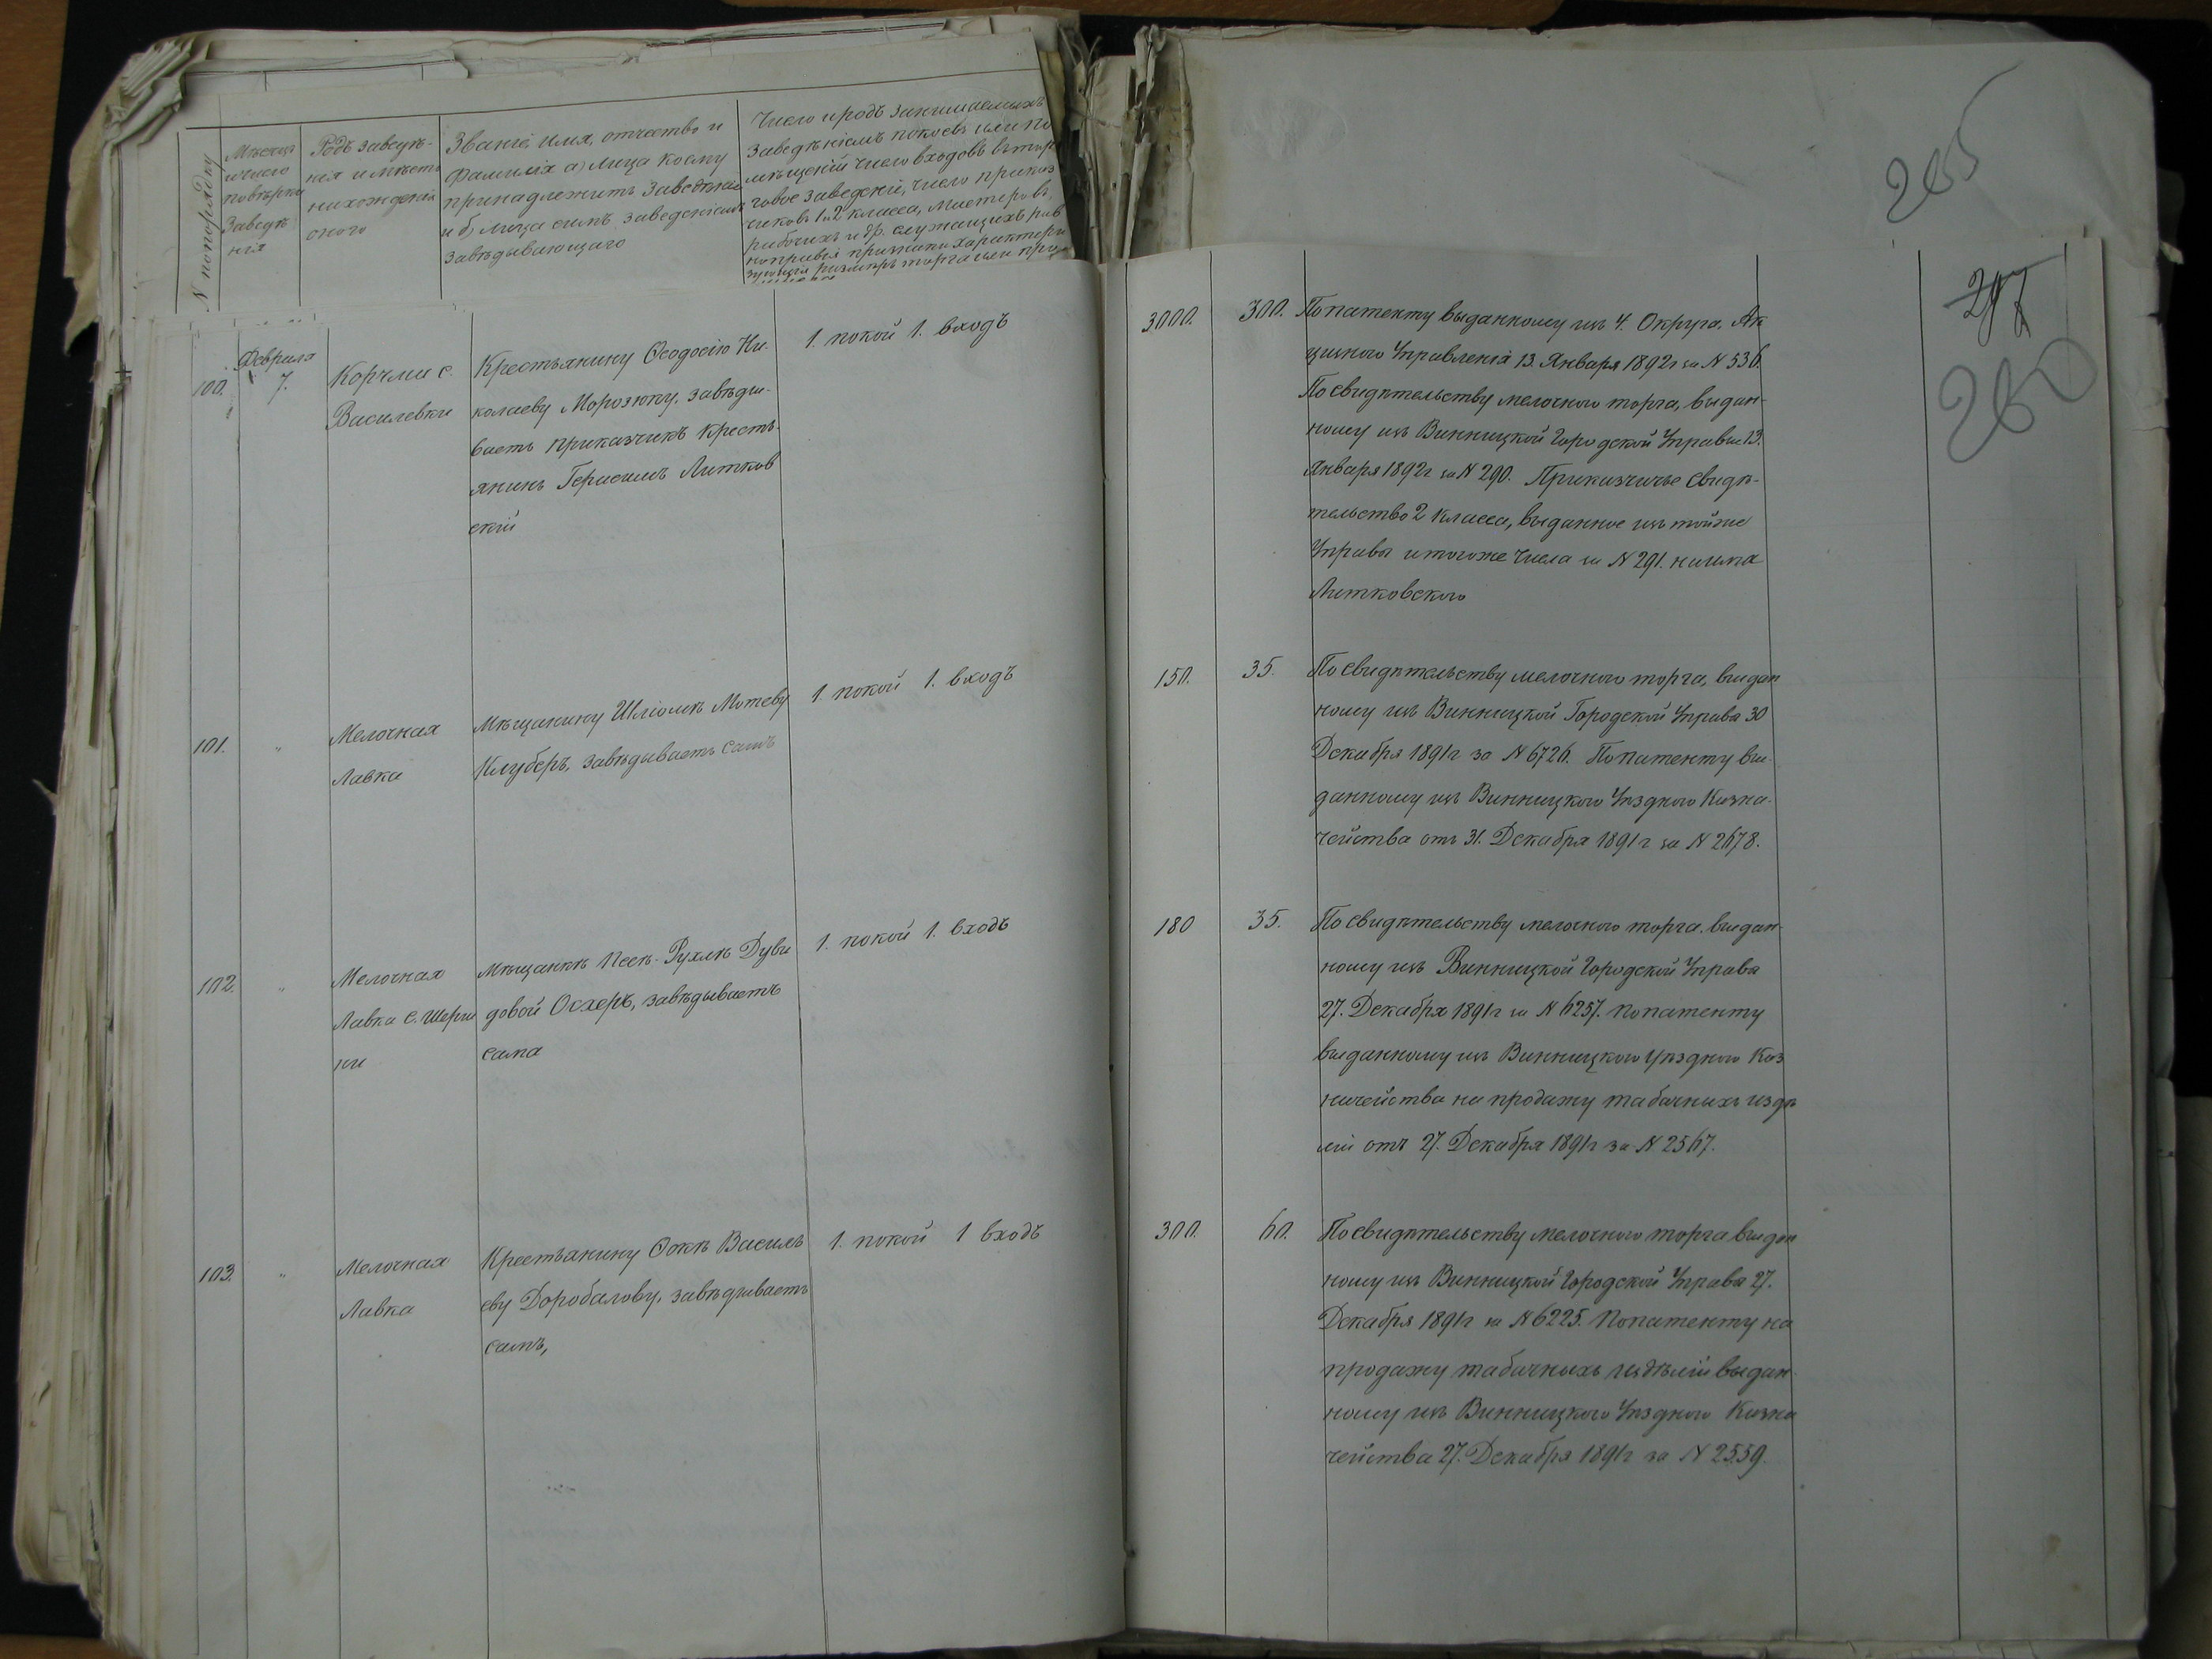 N по порядку
Мѣсяцъ
и число
повѣрки
Заведе
нія
Родъ заведе-
нія и мѣсто
нахожденія
онаго
Званіе, имя, отчество и
фамилія а) лица коему
принадлежитъ заведеніе
и б) лица симъ заведеніемъ
завѣдывающаго
Число и родъ занимаемыхъ
заведеніемъ покоевъ или по
мѣщеній число входовъ въ тор
говое заведеніе, число приказ
чиковъ 1 и 2 класса, мастеровъ,
рабочихъ и др. служащихъ рав
размѣръ торга или
100.
Февраля
7.
Корчма с.
Василевки
Крестьянину Ѳеодосію Ни-
колаеву Морозюку, завѣды-
ваетъ приказчикъ кресть-
янинъ Герасимъ Литков
скій
1. покой 1. входъ
101.
"
Мелочная
Лавка
Мѣщанину Шліомѣ Мотеву
Клуберъ, завѣдываетъ самъ
1. покой 1. входъ
102.
"
Мелочная
Лавка с. Шерш
ни
Мѣщанкѣ Песѣ-Рухлѣ Дуви
довой Осхеръ, завѣдываетъ
сама
1. покой 1. входъ
103.
"
Мелочная
Лавка
Крестьянину Василь
еву Доробалову, завѣдываетъ
самъ,
1. покой 1 входъ
265
297
260
3000. 300. По патенту выданному изъ 4. Округа. Ак
цизного Управленія 13. Января 1892 г за N 536.
По свидѣтельству мелочного торга, выдан-
ному изъ Винницкой Городской Управы 13.
Января 1892 г за N 290. Приказчичье свидѣ-
тельство 2 класса, выданное изъ тойже
Управы и тогоже числа за N 291. на имя
Литковского
150. 35. По свидѣтельству мелочного торга, выдан
ному изъ Винницкой Городской Управы 30
Декабря 1891 г за N 6726. По патенту вы-
данному изъ Винницкого Уѣздного Казна-
чейства отъ 31. Декабря 1891 г за N 2678.
180 35. По свидѣтельству мелочного торга. выдан-
ному изъ Винницкой Городской Управы
27. Декабря 1891 г за N 6257. По патенту
выданному изъ Винницкого Уѣздного Каз
начейства на продажу табачныхъ издѣ
лій отъ 27. Декабря 1891 г за N 2567.
300. 60. По свидѣтельству мелочного торга выдан
ному изъ Винницкой Городской Управы 27.
Декабря 1891 г за N 6225. По патенту на
продажу табачныхъ издѣлій выдан-
ному изъ Винницкого Уѣздного Казна
чейства 27. Декабря 1891 г за N 2559.